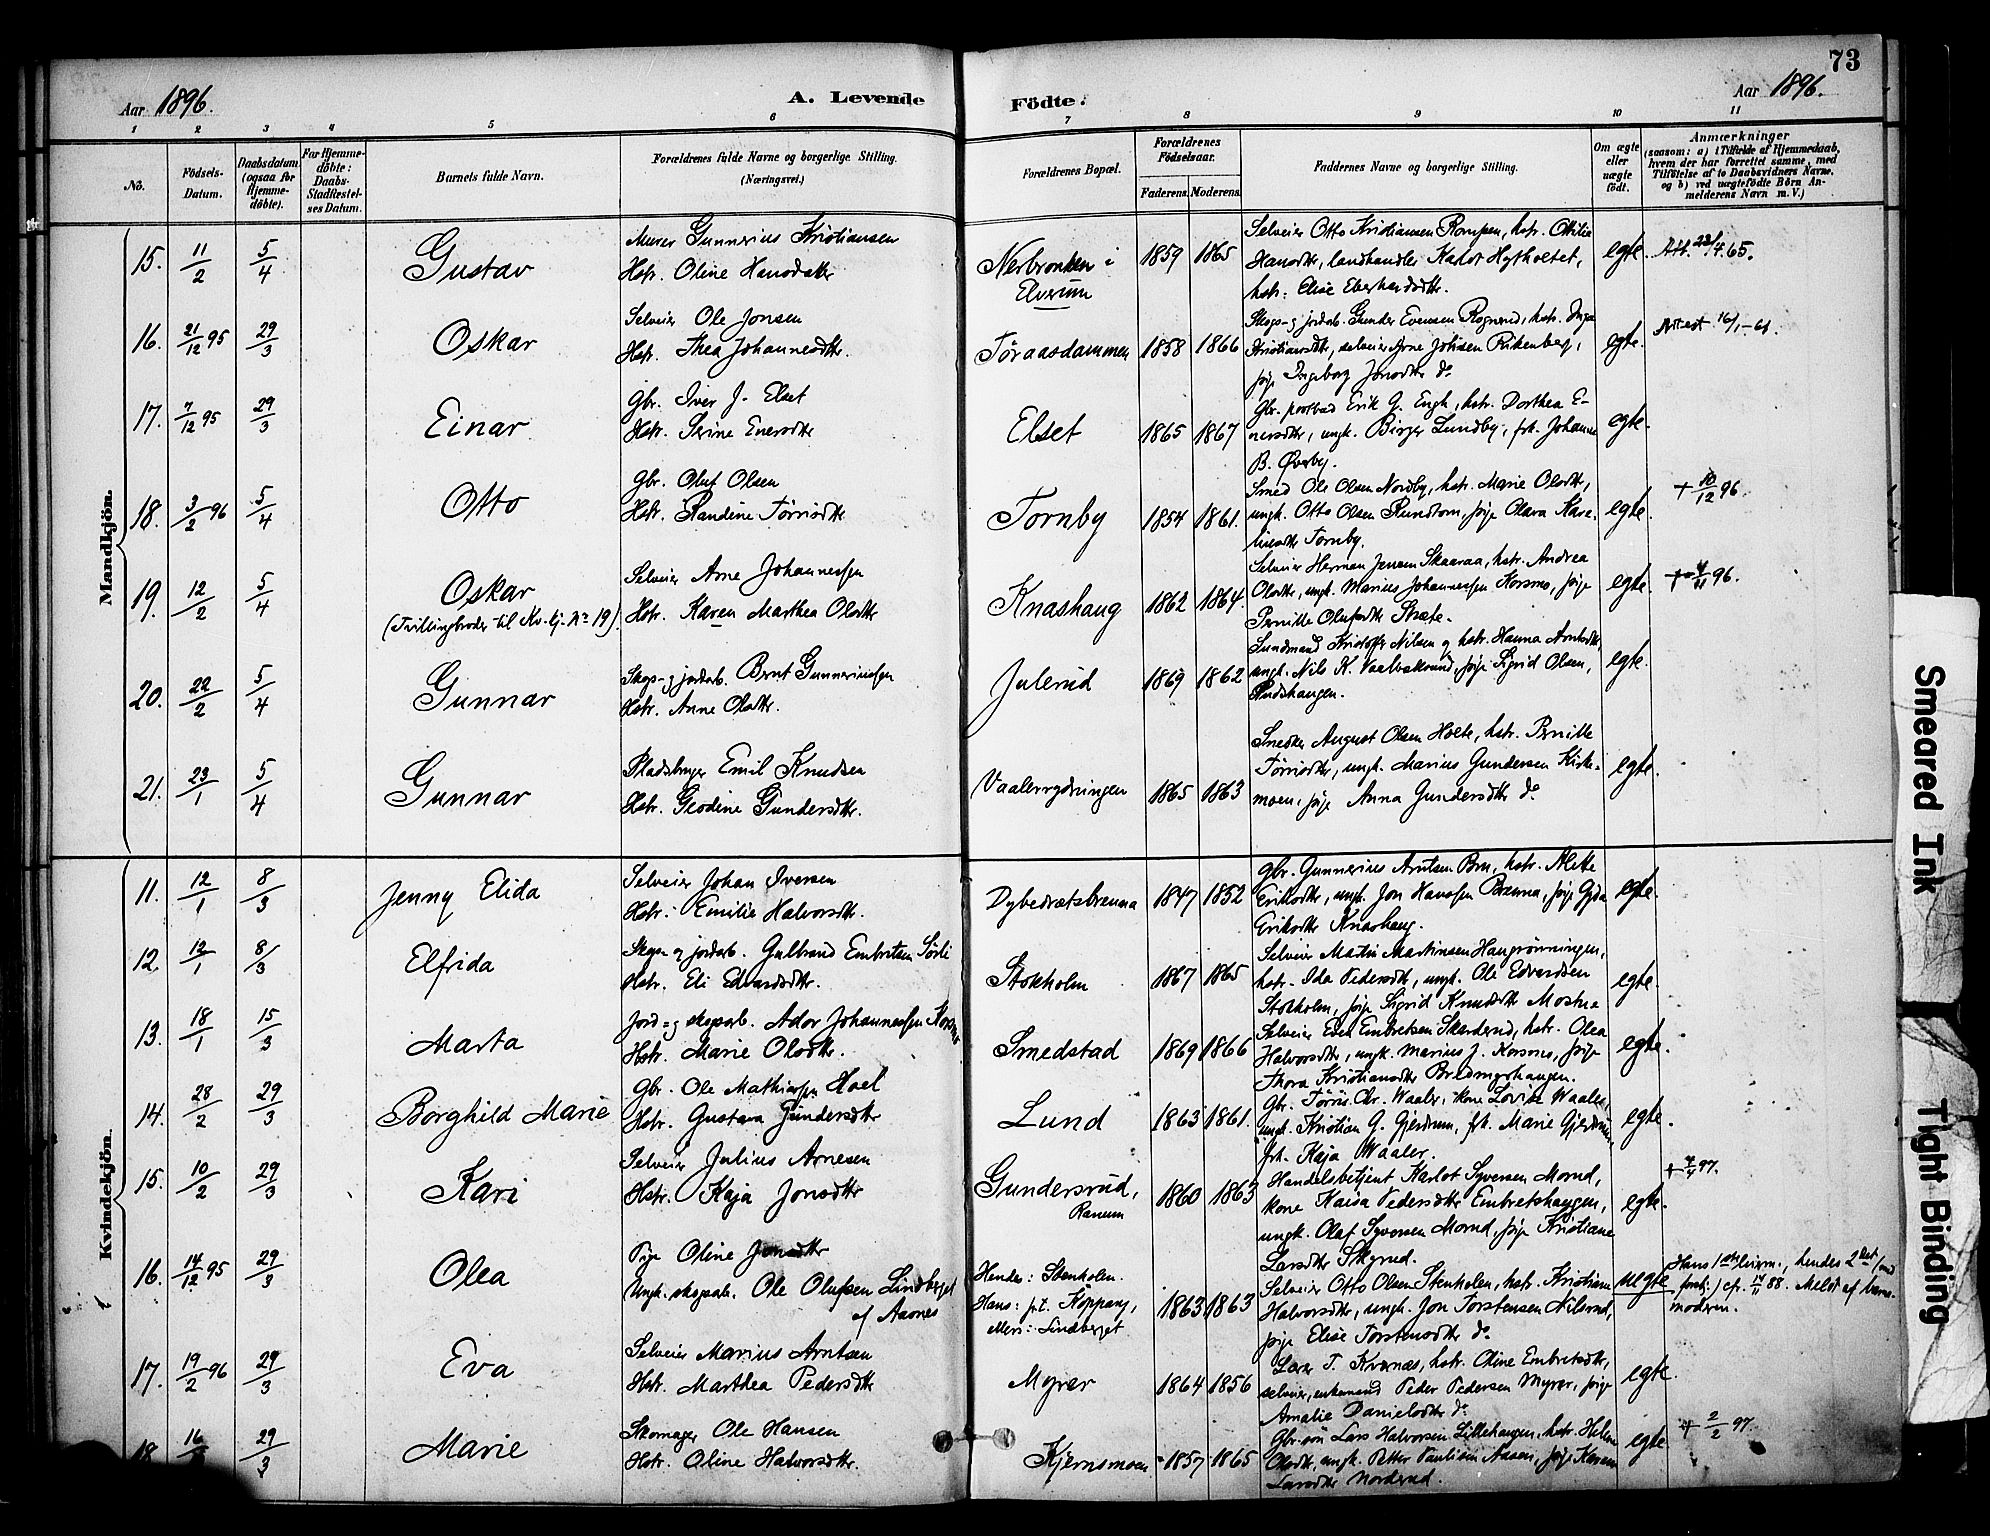 73
Aar 1896.
A. Levende
Födte.
Aar 1896.
1 2 3 4 5 6 7 8 9 10 11
No.
Födsels-Datum.
Daabsdatum (ogsaa for Hjemme-döbte).
For Hjemme-döbte: Daabs-Stadfæstel-ses Datum.
Barnets fulde Navn.
Forældrenes fulde Navne og borgerlige Stilling. (Næringsvei.)
Forældrenes Bopæl.
Forældrenes Födselsaar.
Faderens. Moderens.
Faddernes Navne og borgerlige Stilling.
Om ægte eller uægte födt.
Anmærkninger
(saasom: a) i Tilfælde af Hjemmedaab, hvem der har forrettet samme, med Tilföielse af to Daabsvidners Navne, og b) ved uægtefödte Börn An-melderens Navn m. V.)
Mandkjön.
15. 11/2 5/4 Gustav
Murer Gunnerius Kristiansen
Hstr. Oline Hansdatter
Nerbronken i Elverum 1859 1865
Selveier Otto Kristiansen Rompen, hstr. Otilie
Hansdtr, landhandler Karlot Hytholtet,
hstr: Elise Eberhardsdtr.
egte. Att. 22/4.65.
16. 21/12 95 29/3 Oskar
Selveier Ole Jonsen
Hstr. Thea Johannesdtr.
Töraasdammen 1858 1866
Skogs- og jordarb. Gunder Evensen Rognerud, hstr. Inga
Kristiansdtr, selveier Arne Johnsen Rikenberg,
pige Ingeborg Jonsdtr do
egte. Attest 16/1-61.
17. 7/12 95 29/3 Einar
Gbr. Iver J. Elset
Hstr. Serine Enersdtr
Elset 1865 1867
Gbr. postbud Erik G. Engh, hstr. Dorthea E-
nersdtr, ungk. Birger Lundby, frk. Johanne
B. Øverby.
egte.
18. 3/2 96 5/4 Otto
Gbr. Oluf Olsen
Hstr. Randine Törrisdtr
Tornby 1854 1861.
Smed Ole Olsen Nordby, hstr. Marie Olsdtr,
ungk. Otto Olsen Rundtom, pige Olava Kare-
liusdtr Tornby.
egte. + 10/12 96.
19. 12/2 5/4 Oskar
(Tvillingbroder til Kv.kj. No 19)
Selveier Arne Johannessen
Hstr. Karen Marthea Olsdtr
Knashaug 1862 1864.
Selveier Herman Jensen Skaaraa, hstr. Andrea
Olsdtr, ungk. Marius Johannessen Korsmo, pige
Pernille Olufsdtr Sæte.
egte. 96.
20. 22/2 5/4 Gunnar
Skogs- og jordarb. Bernt Gunneriussen
Hstr. Anne Olsdtr.
Julerud 1869 1862
Sundmand Kristoffer Nilsen og hstr. Hanna Arntsdtr,
ungk. Nils K. Vaalbakrund, pige Sigrid Olsen,
Rudshaugen.
egte.
21. 23/1 5/4 Gunnar
Pladsbruger Emil Knudsen
Hstr. Geodine Gundersdtr.
Vaalerrydningen 1865 1863
Smedker August Olsen Holte, hstr. Pernille
Törrisdtr, ungk. Marius Gundersen Kirke-
moen, pige Anna Gundersdtr do
egte.
Kvindekjön.
11. 12/1 8/3 Jenny Elida
Selveier Johan Iversen
Hstr: Emilie Halvorsdtr.
Dybedrætsbrænna 1847 1852
Gbr. Gunnerius Arntsen Bru, hstr. Mette
Eriksdtr, ungk. Jon Hansen Brænna, pige Gyda
Eriksdtr Knashaug.
egte.
12. 12/1 8/3 Elfrida
Skogs- og jordarb. Gulbrand Embretsen Sörli
Hstr. Eli Edvardsdtr.
Stokholm 1867 1865
Selveier Martin Martinsen Haugrönningen,
hstr. Ida Pedersdtr, ungk. Ole Edvardsen
Stokholm, pige Sigrid Knudsdtr Mostue
egte.
13. 18/1 15/3 Marta
Jord- og skogsarb. Ador Johannessen Korsmo
Hstr. Marie Olsdtr.
Smedstad 1869 1866
Selveier Even Embretsen Skarderud, hstr. Olea
Halvorsdtr, ungk. Marius J. Korsmo, pige
Thora Kristiansdtr Bredmyrshaugen.
egte.
14. 28/2 29/3 Borghild Marie
Gbr. Ole Mathiassen Hoel
Hstr. Gustava Gundersdtr
Lund 1863 1861.
Gbr. Törris Chr. Waaler, kone Lovise Waaler,
ungk. Kristian G. Gjerdrum, frk. Marie Gjerdrum,
frk. Kaja Waaler.
egte.
15. 10/2 29/3 Kari
Selveier Julius Arnesen
Hstr. Kaja Jonsdtr
Gundersrud, Ranum 1860 1863
Handelsbetjent Karlot Syversen Mornd,
kone Kaisa Pedersdtr Embretshaugen,
ungk. Olaf Syversen Mornd, pige Kristiane
Larsdtr Skyrud.
egte. + 97.
16. 14/12 95 29/3 Olea
Pige Oline Jonsdtr
Ungk. skogsarb. Ole Olufsen Lindberget
af Aasnes
Hendes: Stenholen.
Hans: p.t. Koppang,
ellers: Lindberget
1863 1863
Selveier Otto Olsen Stenholen, hstr. Kristiane
Halvorsdtr, ungk. Jon Torstensen Nilsrud,
pige Elise Torstensdtr do
uegte
Hans 1ste leierm., hendes 2det (med
forskj.) cfr. 88. Meldt af barne-
moderen.
17. 19/2 96 29/3 Eva
Selveier Marius Arntsen
Hstr. Marthea Pedersdtr
Myrer 1864 1856
Lærer T. Kvernæs, hstr. Oline Embretsdtr,
selveier, enkemand Peder Pedersen Myrer, pige
Amalie Danielsdtr do
egte.
18. 16 29/3 Marie
Skomager Ole Hansen
Hstr. Oline Halvorsdtr.
Kjernsmoen 1857 1865
Gbr.sön Lars Halvorsen Lillehaugen, hstr. Helene
Olsdtr, ungk. Petter Paulsen Aasen, pige Karen
Larsdtr Norderud.
egte. + 2/2 97.
Smeared Ink
Tight Binding